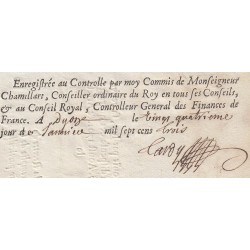 Enregistrée au Controlle par moy Commis de Monseigneur
Chamillart, Conseiller ordinaire du Roy en tous ses Conseils,
& au Conseil Royal, Controlleur General des Finances de
France. A Dijon le Vingt quatrieme
jour de Janvier mil sept cens trois